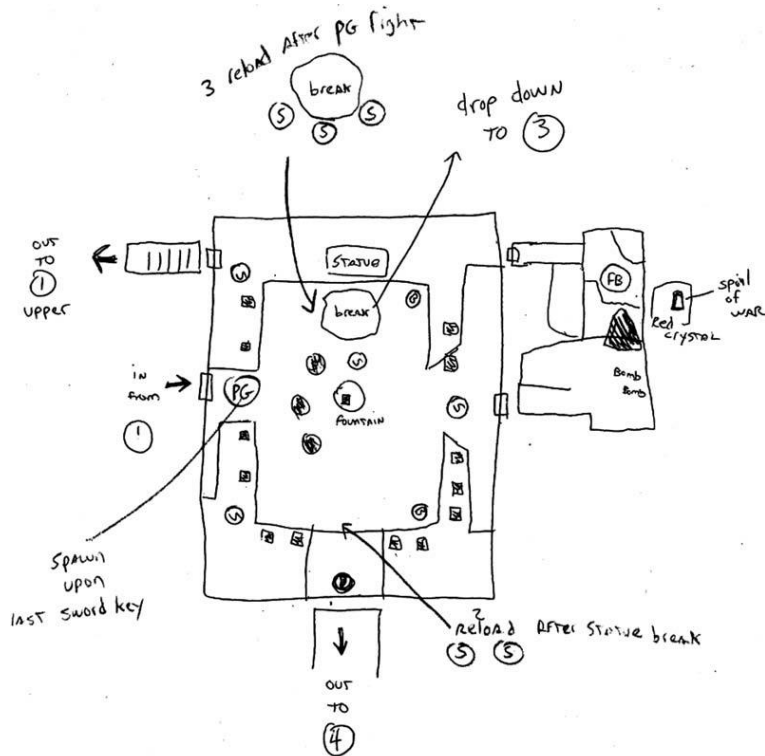 3 reload After PG fight
break
S S S
drop down
TO 3
OUT
TO
1
upper
STATUE
S
break
S
FB
spoil
of
WAR
Red
CRYSTAL
in
from
1
PG
S
FOUNTAIN
S
Bomb
Bomb
S
S
Spawn
upon
last sword key
2
Reload After Statue break
S S
OUT
TO
4